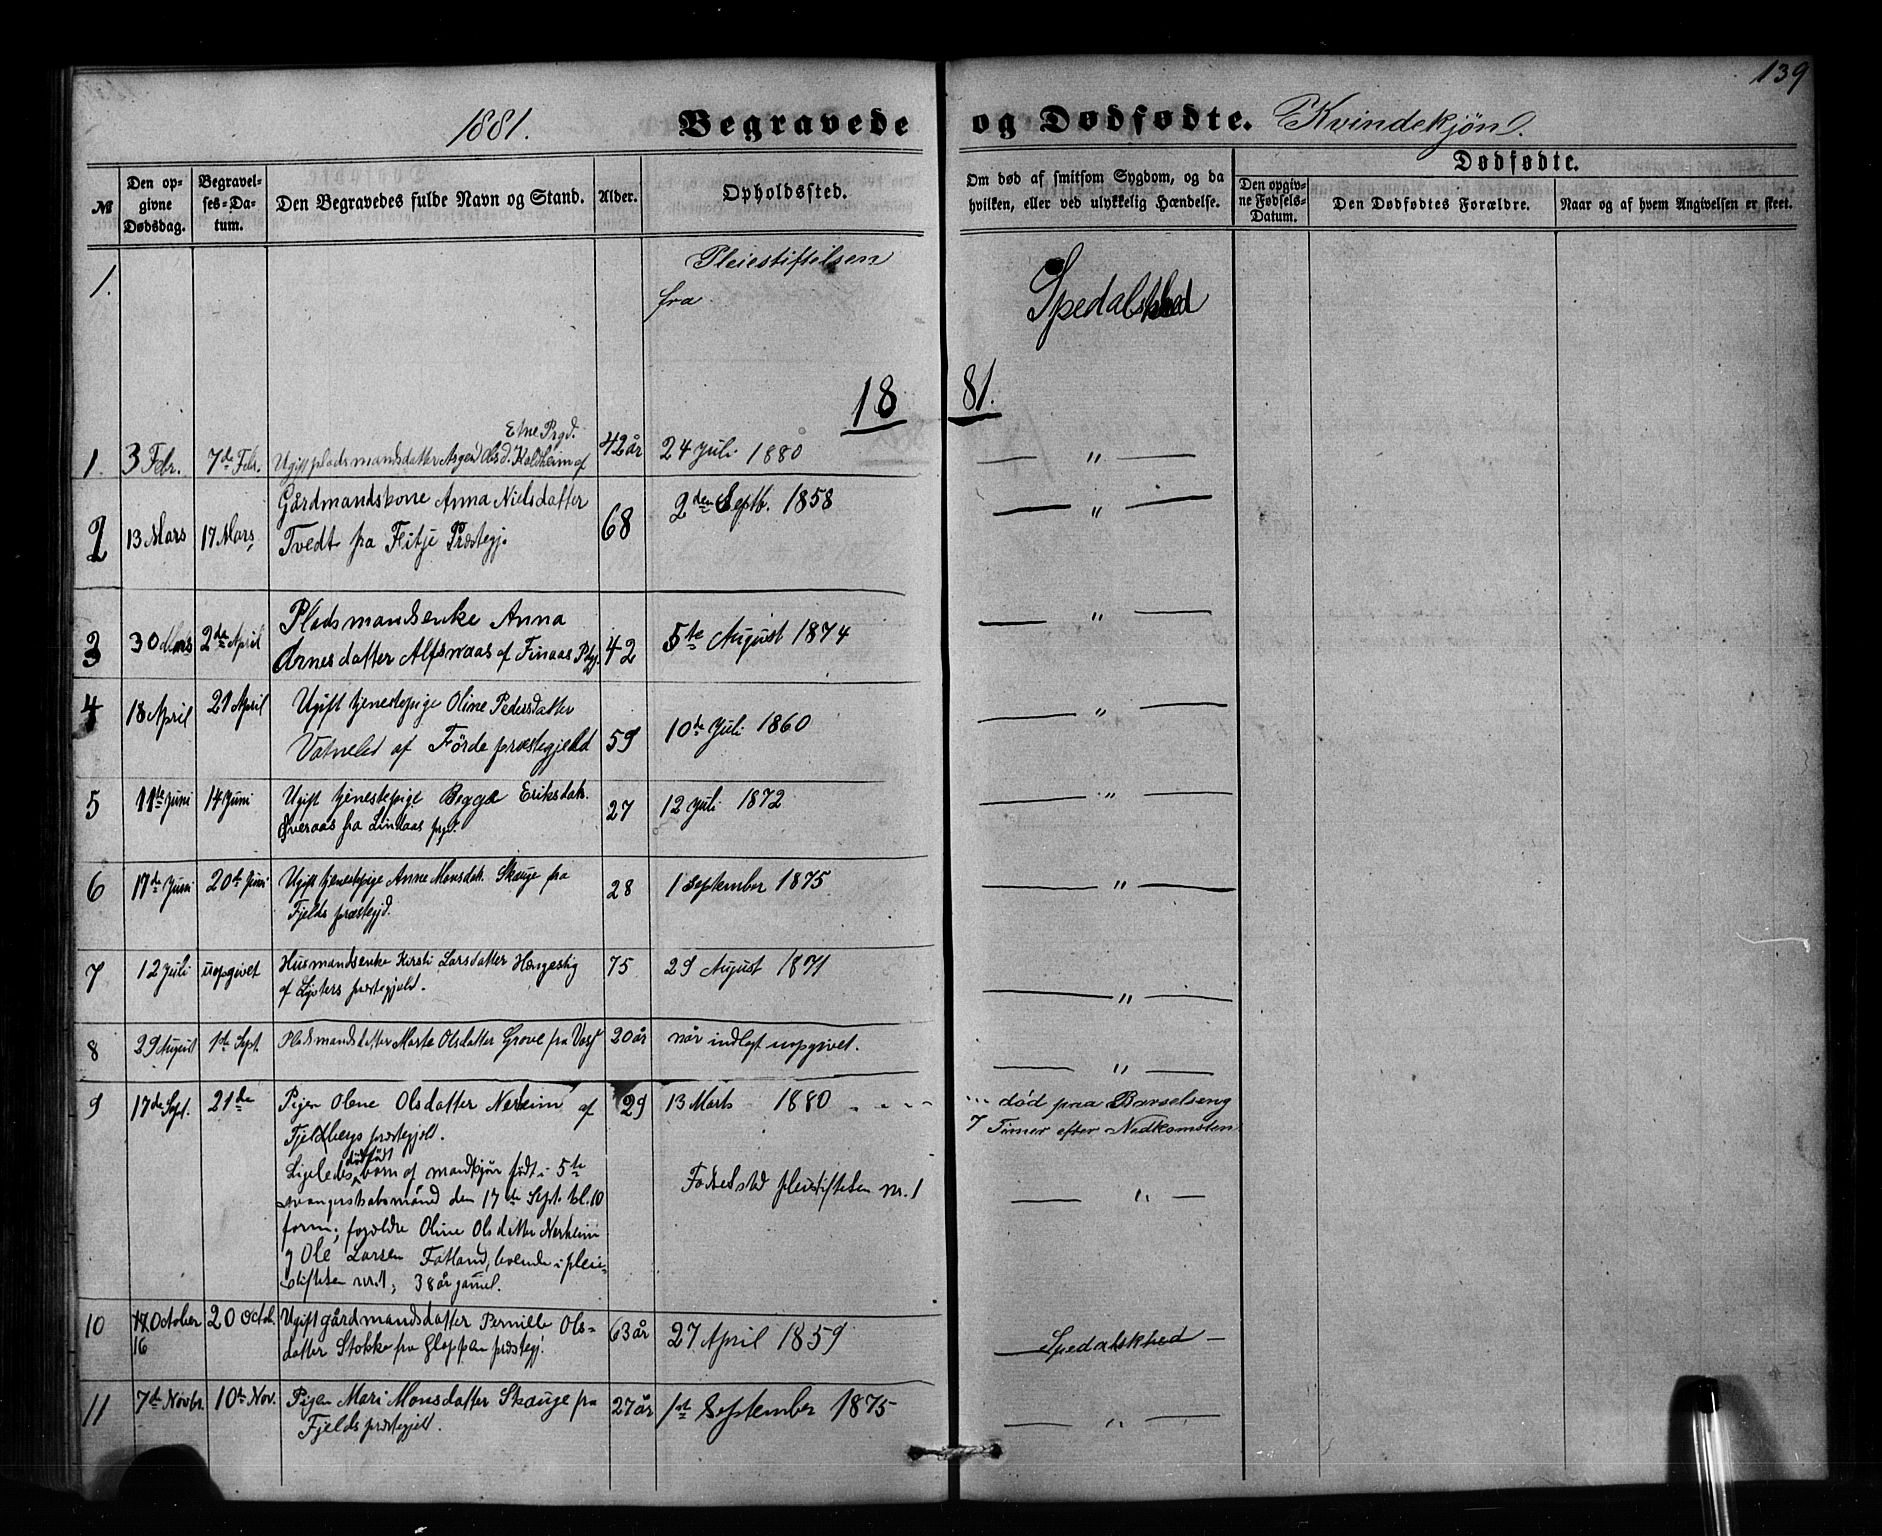 139
1881. Begravede og Dødfødte. Kvindekjøn.
№
Den opgivne Dødsdag.
Begravelses-Datum.
Den Begravedes fulde Navn og Stand.
Alder.
Opholdssted.
Om død af smitsom Sygdom, og da hvilken, eller ved ulykkelig Hændelse.
Dødfødte.
Den opgivne Fødsels-Datum.
Den Dødfødtes Forældre.
Naar og af hvem Angivelsen er skeet.
1.
Pleiestiftelsen
fra
Spedalskhed
18 81.
Etne Prgd.
1. 3 Febr. 7de Febr. Ugift pladsmandsdatter Olsd. Holdheim af 42 år 24 Juli 1880 — " —
2 13 Mars 17 Mars, Gårdmandskone Anna Nielsdatter 68 2den Septb. 1858 — " —
Tvedt fra Fitje Præstegj.
3 30 Mars 2de April Pladsmandsenke Anna 42 5te August 1874 — " —
Arnesdatter Alfsvaas af Finaas Pgj.
4 18 April 21 April Ugift tjenestepige Oline Pedersdatter 59 10de Juli 1860 — " —
af Förde præstegjeld
5 11te Juni 14 Juni Ugift tjenestepige Begga Eriksdatr. 27 12 Juli 1872 — " —
Øveraas fra Lindaas prgd.
6 17de Juni 20de Juni Ugift tjenestepige Anne Monsdatr. Skauge fra 28 1 September 1875 — " —
Fjelds præstegjd.
7 12 Juli uopgivet Husmandsenke Kirsti Larsdatter Hængestig 75 29 August 1871 — " —
af Lysters præstegjeld.
8 29 August 1ste Sept. Pladsmandsdatter Marte Olsdatter Grove fra Voss 20 år når indlagt uopgivet. — " —
9 17de Sept. 21de Pigen Olene Olsdatter Nerheim af 29 13 Marts 1880 . - - - ... død paa Barselseng
Fjeldbergs præstegjeld. 7 Timer efter Nedkomsten
dödfödt
Ligeledes barn af mandkjön födt i 5te Fodselstad pleiestiftelsen nr. 1 — " —
svangerskabsmånd den 17de Sept. kl. 10
form; forældre Oline Olsdatter Nerheim
og Ole Larsen Fatland, levende i pleie-
stiftelsen nr. 1, 38 år gamel.
10 17 October 20 Octob. Ugift gårdmandsdatter Pernille Ols- 63 år 27 April 1859 — Spedalskhed —
16 datter Stokke fra Gloppen præstegj.
11 7de Novbr. 10de Nov. Pigen Mari Monsdatter Skauge fra 27 år 1ste September 1875 — " —
Fjelds præstegjeld.